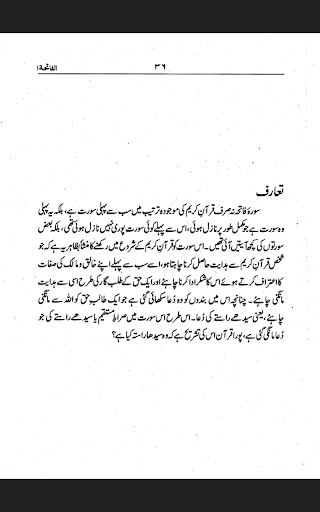 الفاتحۃ ۱
۳۶
تعارف
سورۂ فاتحہ نہ صرف قرآنِ کریم کی موجودہ ترتیب میں سب سے پہلی سورت ہے، بلکہ یہ پہلی
وہ سورت ہے جو مکمل طور پر نازل ہوئی، اس سے پہلے کوئی سورت پوری نہیں نازل ہوئی تھی، بلکہ بعض
سورتوں کی کچھ آیتیں آئی تھیں۔ اس سورت کو قرآنِ کریم کے شروع میں رکھنے کا منشا بظاہر یہ ہے کہ جو
شخص قرآنِ کریم سے ہدایت حاصل کرنا چاہتا ہو، اُسے سب سے پہلے اپنے خالق و مالک کی صفات
کا اعتراف کرتے ہوئے اس کا شکر ادا کرنا چاہئے اور ایک حق کے طلب گار کی طرح اُسی سے ہدایت
مانگنی چاہئے۔ چنانچہ اس میں بندوں کو وہ دُعا سکھائی گئی ہے جو ایک طالبِ حق کو اللہ سے مانگنی
چاہئے، یعنی سیدھے راستے کی دُعا۔ اس طرح اس سورت میں صراطِ مستقیم یا سیدھے راستے کی جو
دُعا مانگی گئی ہے، پورا قرآن اس کی تشریح ہے کہ وہ سیدھا راستہ کیا ہے؟